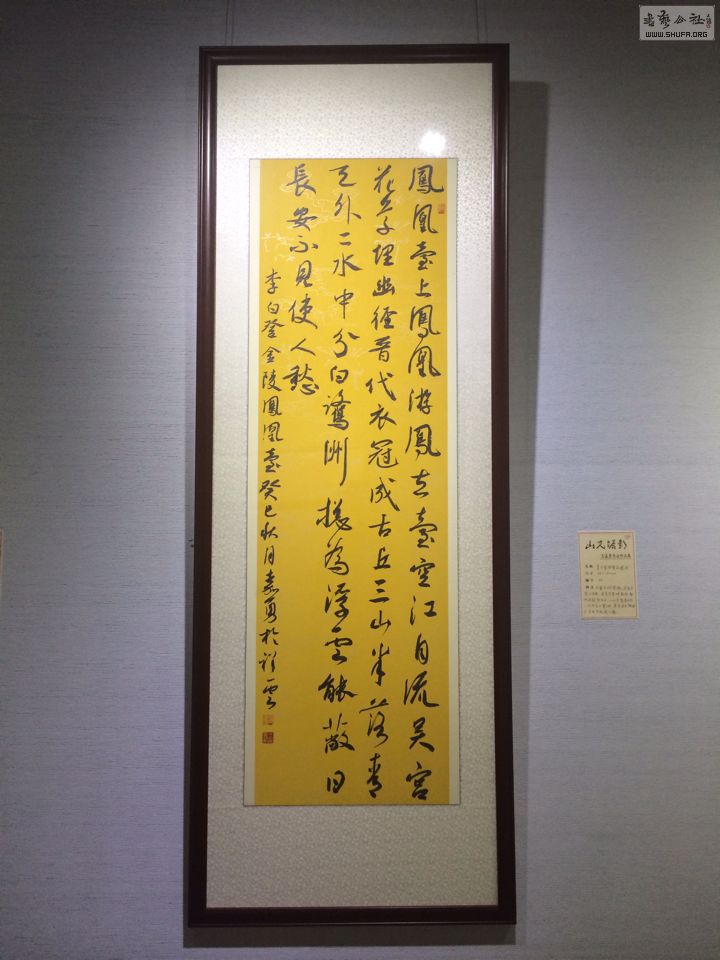 鳳凰臺上鳳凰游鳳去臺空江自流吴宫
花草埋幽徑晉代衣冠成古丘三山半落青
天外二水中分白鷺洲總為浮雲能蔽日
長安不見使人愁
李白登金陵鳳凰臺癸巳秋月勇於雲
書藝公社
WWW.SHUFA.ORG